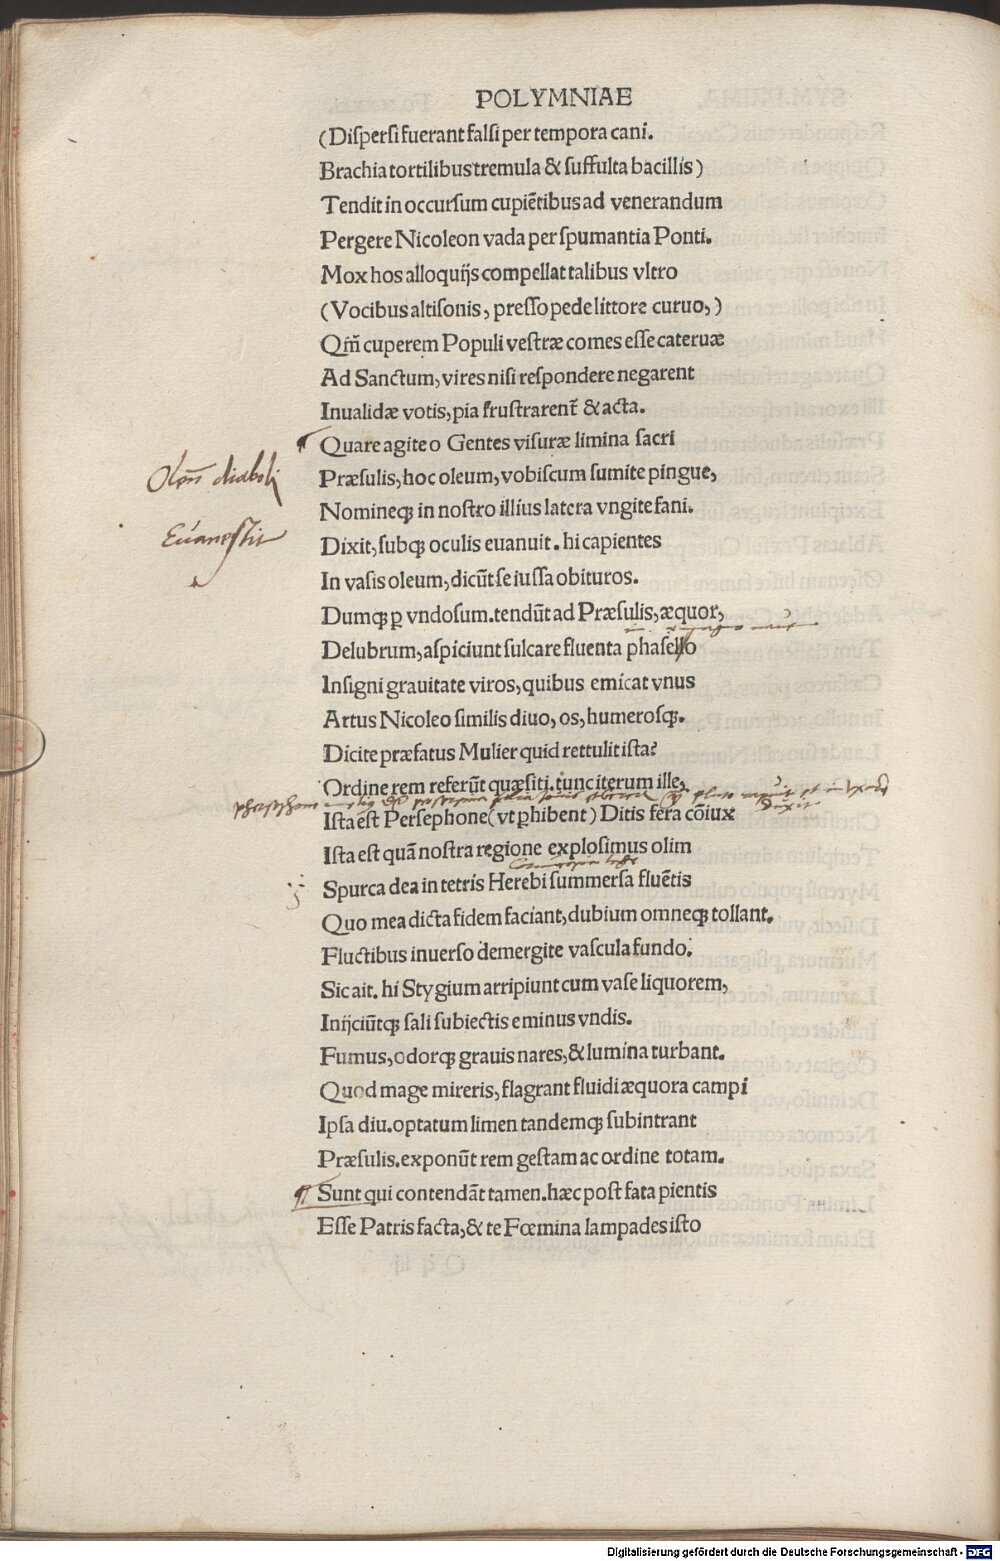 POLYMNIAE
(Dispersi fuerant falsi per tempora cani.
Brachia tortilibus tremula & suffulta bacillis)
Tendit in occursum cupiētibus ad venerandum
Pergere Nicoleon vada per spumantia Ponti.
Mox hos alloquijs compellat talibus vltro
(Vocibus altisonis, presso pede littore curuo,)
Qm̄ cuperem Populi vestræ comes esse cateruæ
Ad Sanctum, vires nisi respondere negarent
Inualidæ votis, pia frustrarent̄ & acta.
¶ Quare agite o Gentes visuræ limina sacri
Præsulis, hoc oleum, vobiscum sumite pingue,
Olm̄ diaboli
Nomineq; in nostro illius latera vngite fani.
Euanescit
Dixit, subq; oculis euanuit. hi capientes
In vasis oleum, dicūt se iussa obituros.
Dumq; ꝑ vndosum. tendūt ad Præsulis, æquor,
Delubrum, aspiciunt sulcare fluenta phasello
Insigni grauitate viros, quibus emicat vnus
Artus Nicoleo similis diuo, os, humerosq;.
Dicite præfatus Mulier quid rettulit ista?
Ordine rem referūt quæsiti. tunc iterum ille,
Ista est Persephone (vt ꝑhibent) Ditis fera cōiux
Ista est quā nostra regione explosimus olim
Spurca dea in tetris Herebi summersa fluētis
Quo mea dicta fidem faciant, dubium omneq; tollant.
Fluctibus inuerso demergite vascula fundo.
Sic ait. hi Stygium arripiunt cum vase liquorem,
Inijciūtq; sali subiectis eminus vndis.
Fumus, odorq; grauis nares, & lumina turbant.
Quod mage mireris, flagrant fluidi æquora campi
Ipsa diu. optatum limen tandemq; subintrant
Præsulis. exponūt rem gestam ac ordine totam.
¶ Sunt qui contendāt tamen. hæc post fata pientis
Esse Patris facta, & te Fœmina lampades isto
Digitalisierung gefördert durch die Deutsche Forschungsgemeinschaft - DFG